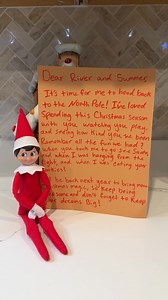 Dear River and Summer
It's time for me to head back
to the North Pole! I've loved
Spending this Christmas season
with you, watching you play,
and seeing how kind you've been
Remember all the fun we had?
when you took me to see Santa,
and when I was hanging from the
light, and when I was eating your
I'll be back next year to bring more
magic, so keep being
and don't forget to keep
dreams Big!